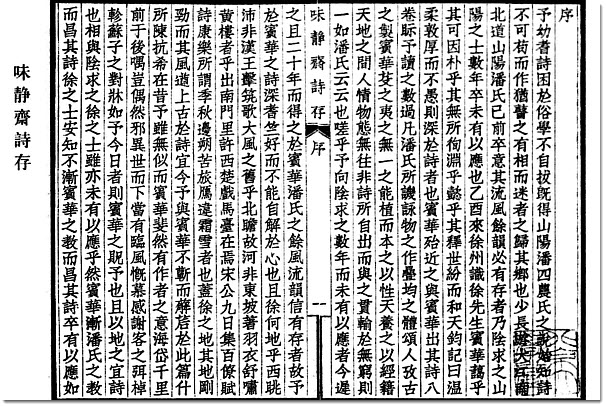 序
予幼耆詩困於俗學不自拔旣得山陽潘四農氏之說始知詩
不可苟而作猶瞽之有相而迷者之歸其鄉也少長游大江南
北道山陽潘氏已前卒意其流風餘韻必有存者乃陰求之山
陽之士數年卒未有以應也乙酉來徐州識徐先生賓華藹乎
其可因朴乎其無所徇淵乎懿乎其釋世紛而和天鈞記曰溫
柔敦厚而不愚則深於詩者也賓華殆近之與賓華出其詩八
卷眎予讀之數過凡潘氏所譏詠物之作疊均之體頌人攷古
之製賓華芟之夷之無一之能植而本之以性天養之以經籍
天地之間人情物態無往非詩所自出而與之貫輸於無窮則
一如潘氏云云也嗟乎予向陰求之數年而未有以應者今遲
味静齋詩存 序 一
之且二十年而得之於賓華潘氏之餘風流韻信有存者故予
於賓華之詩深耆竺好而不能自解於心也且徐何地乎西眺
沛非漢王擊筑歌大風之舊乎北瞻故河非東坡著羽衣舒嘯
黃樓者乎出南門里許西楚戲馬臺在焉宋公九日集百僚賦
詩康樂所謂季秋邊朔苦旅鴈違霜雪者也蓋徐之地其地剛
勁而其風遒上古於詩宜今予與賓華不蘄而解后於此篇什
所陳抗希在昔予雖無似而賓華斐然有作者之意海岱千里
前于後喁豈偶然邪異世而下當有臨風慨慕感謝客之弭棹
軫蘇子之對牀如予今日者則賓華之貺予也且以地之宜詩
也相與陰求之徐之士雖亦未有以應乎然賓華漸潘氏之教
而昌其詩徐之士安知不漸賓華之教而昌其詩卒有以應如
味静齋詩存